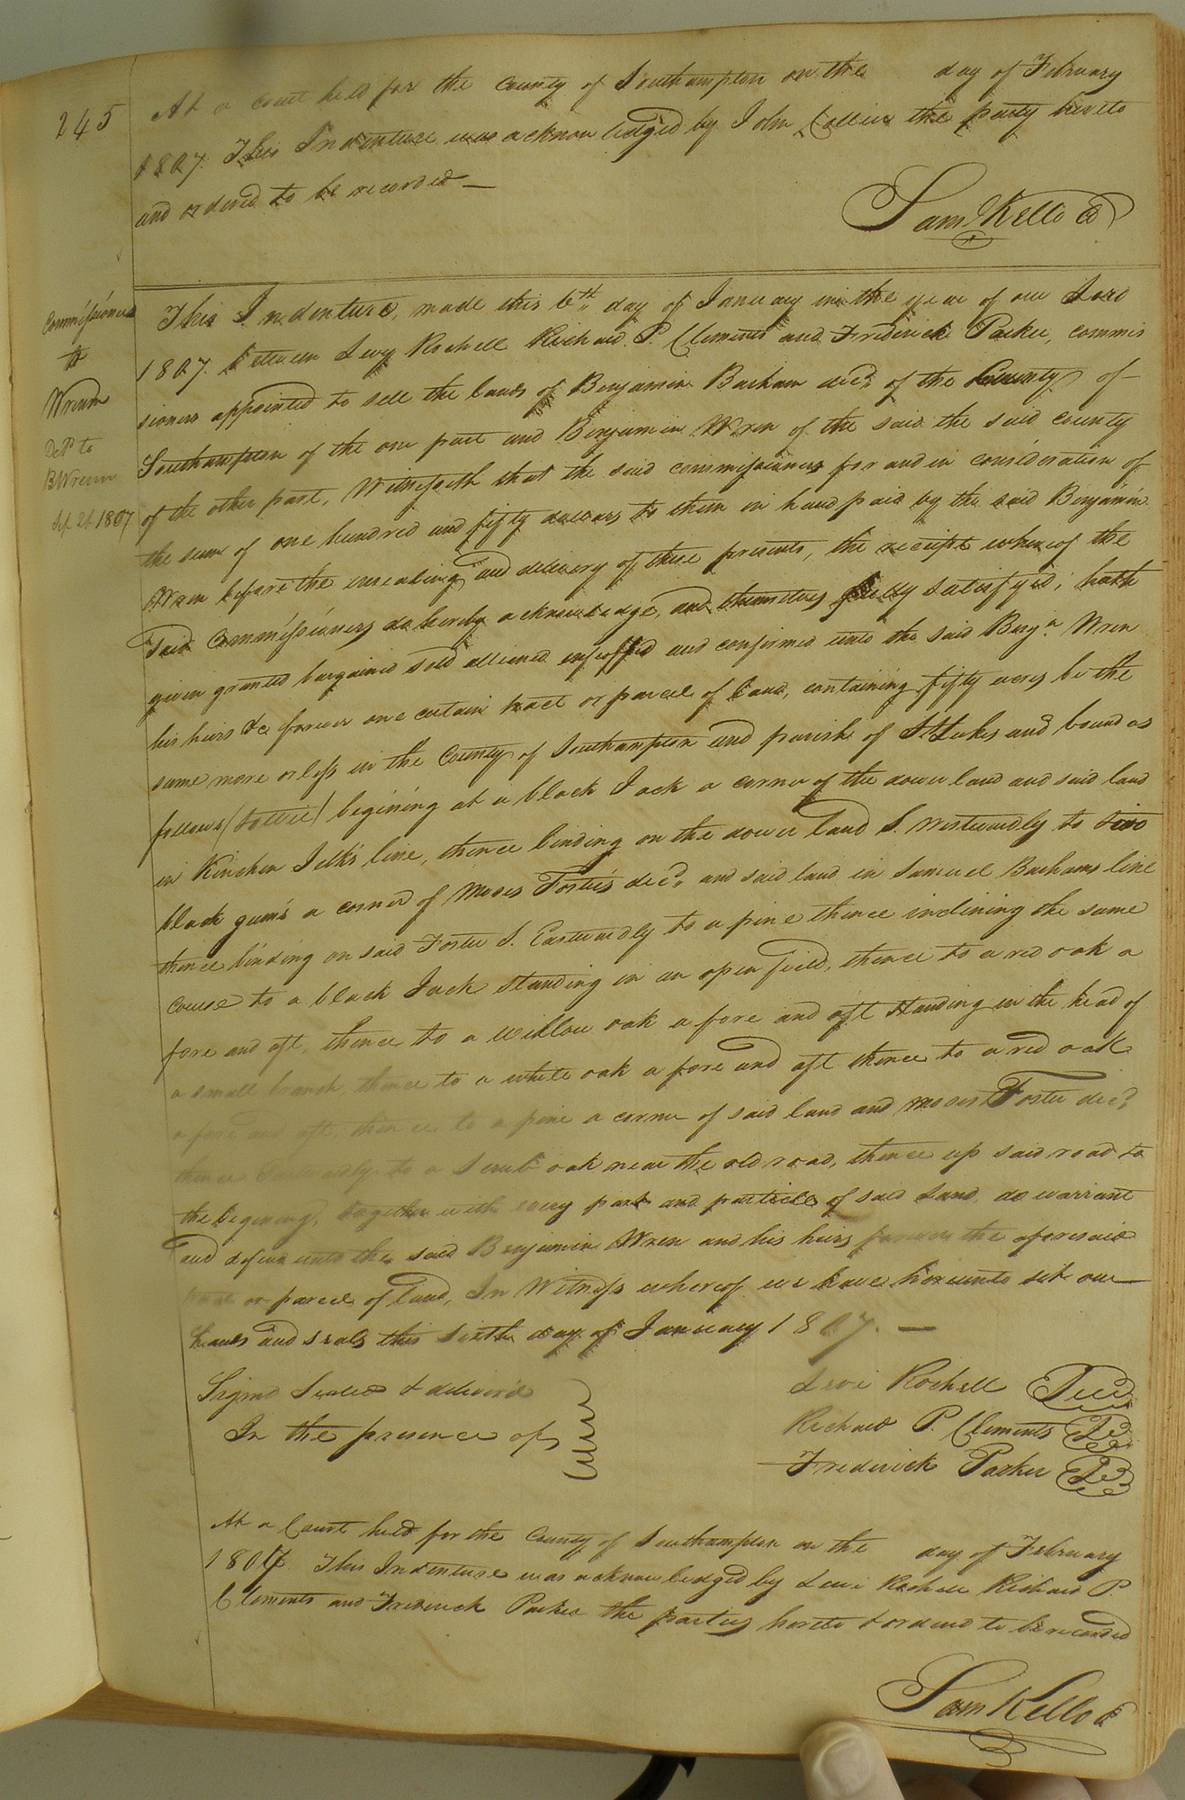 245
At a court held for the County of Southampton on the day of February
1807. This Indenture was acknowledged by John Collier the party hereto
and ordered to be recorded —
Sam Kello Cl
Commissioners
to
Wrenn
Deld to
B Wrenn
Sep 26 1807
This Indenture, made this 6th day of January in the year of our Lord
1807. between Levy Rochell Richard P. Clements and Frederick Parker, commis
sioners appointed to sell the lands of Benjamin Barham decd. of the County of —
Southampton of the one part and Benjamin Wren of the said the said county
of the other part, Witnesseth that the said commissioners for and in consideration of
the sum of one hundred and fifty dollars to them in hand paid by the said Benjamin
Wren before the ensealing and delivery of these presents, the receipt whereof the
said Commissioners do hereby acknowledge, and themselves fully satisfyed, hath
given granted bargained sold aliened enfeoffed and confirmed unto the said Benja. Wren
his heirs &c forever one certain tract or parcel of land, containing fifty acres be the
same more or less in the County of Southampton and parish of St. Lukes and bound as
follows (to wit) begining at a black Jack a corner of the dower land and said land
in Kinchen Jelks line, thence binding on the dower land S. Westwardly to two
black gums a corner of Moses Fosters decd. and said land in Samuel Barhams line
thence binding on said Foster S. Eastwardly to a pine thence inclining the same
course to a black Jack standing in an open field, thence to a red oak a
fore and aft, thence to a willow oak a fore and aft standing in the head of
a small branch, thence to a white oak a fore and aft thence to a red oak
a fore and aft, thence to a pine a corner of said land and Moses Foster decd.
thence Eastwardly to a Scrub oak near the old road, thence up said road to
the begining, together with every part and particle of said Land, do warrant
and defend unto the said Benjamin Wren and his heirs forever the aforesaid
tract or parcel of land, In Witness whereof we have hereunto set our —
hands and seals this sixth day of January 1807. —
Signed Sealed & deliver'd
In the presence of
Levi Rochell
Richard P. Clements
Frederick Parker
At a Court held for the County of Southampton on the day of February
1807 This Indenture was acknowledged by Levi Rochell Richard P.
Clements and Frederick Parker the parties hereto & ordered to be recorded
Sam Kello Cl